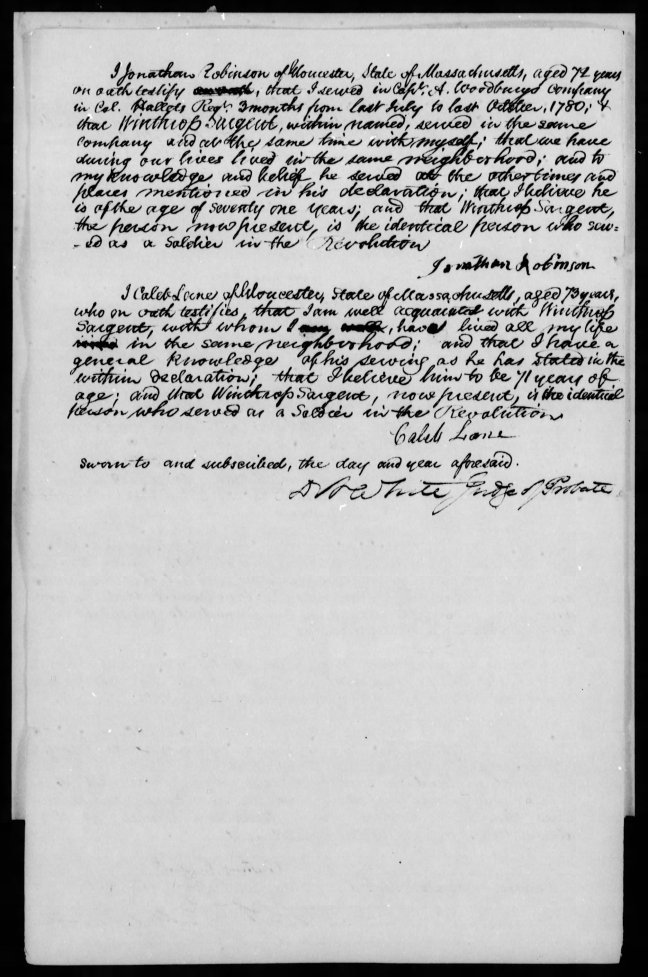 I Jonathan Robinson of Gloucester, State of Massachusetts, aged 72 years
on oath testify, that I served in Capt. A. Woodbury's Company
in Col. Regt. 3 months from last July to last October, 1780, &
that Winthrop Sargent, within named, served in the same
company and at the same time with myself; that we have
during our lives lived in the same neighborhood; and to
my knowledge and belief he served at the other times and
places mentioned in his declaration; that I believe he
is of the age of seventy one years; and that Winthrop Sargent,
the person now present, is the identical person who serv=
=ed as a Soldier in the Revolution
Jonathan Robinson
I Caleb Lane of Gloucester, State of Massachusetts, aged 73 years,
who on oath testifies, that I am well acquainted with Winthrop
Sargent, with whom I have lived all my life
in the same neighborhood; and that I have a
general knowledge of his serving as he has stated in the
within declaration; that I believe him to be 71 years of
age; and that Winthrop Sargent, now present, is the identical
person who served as a Soldier in the Revolution
Caleb Lane
Sworn to and subscribed, the day and year aforesaid.
D A White Judge of Probate